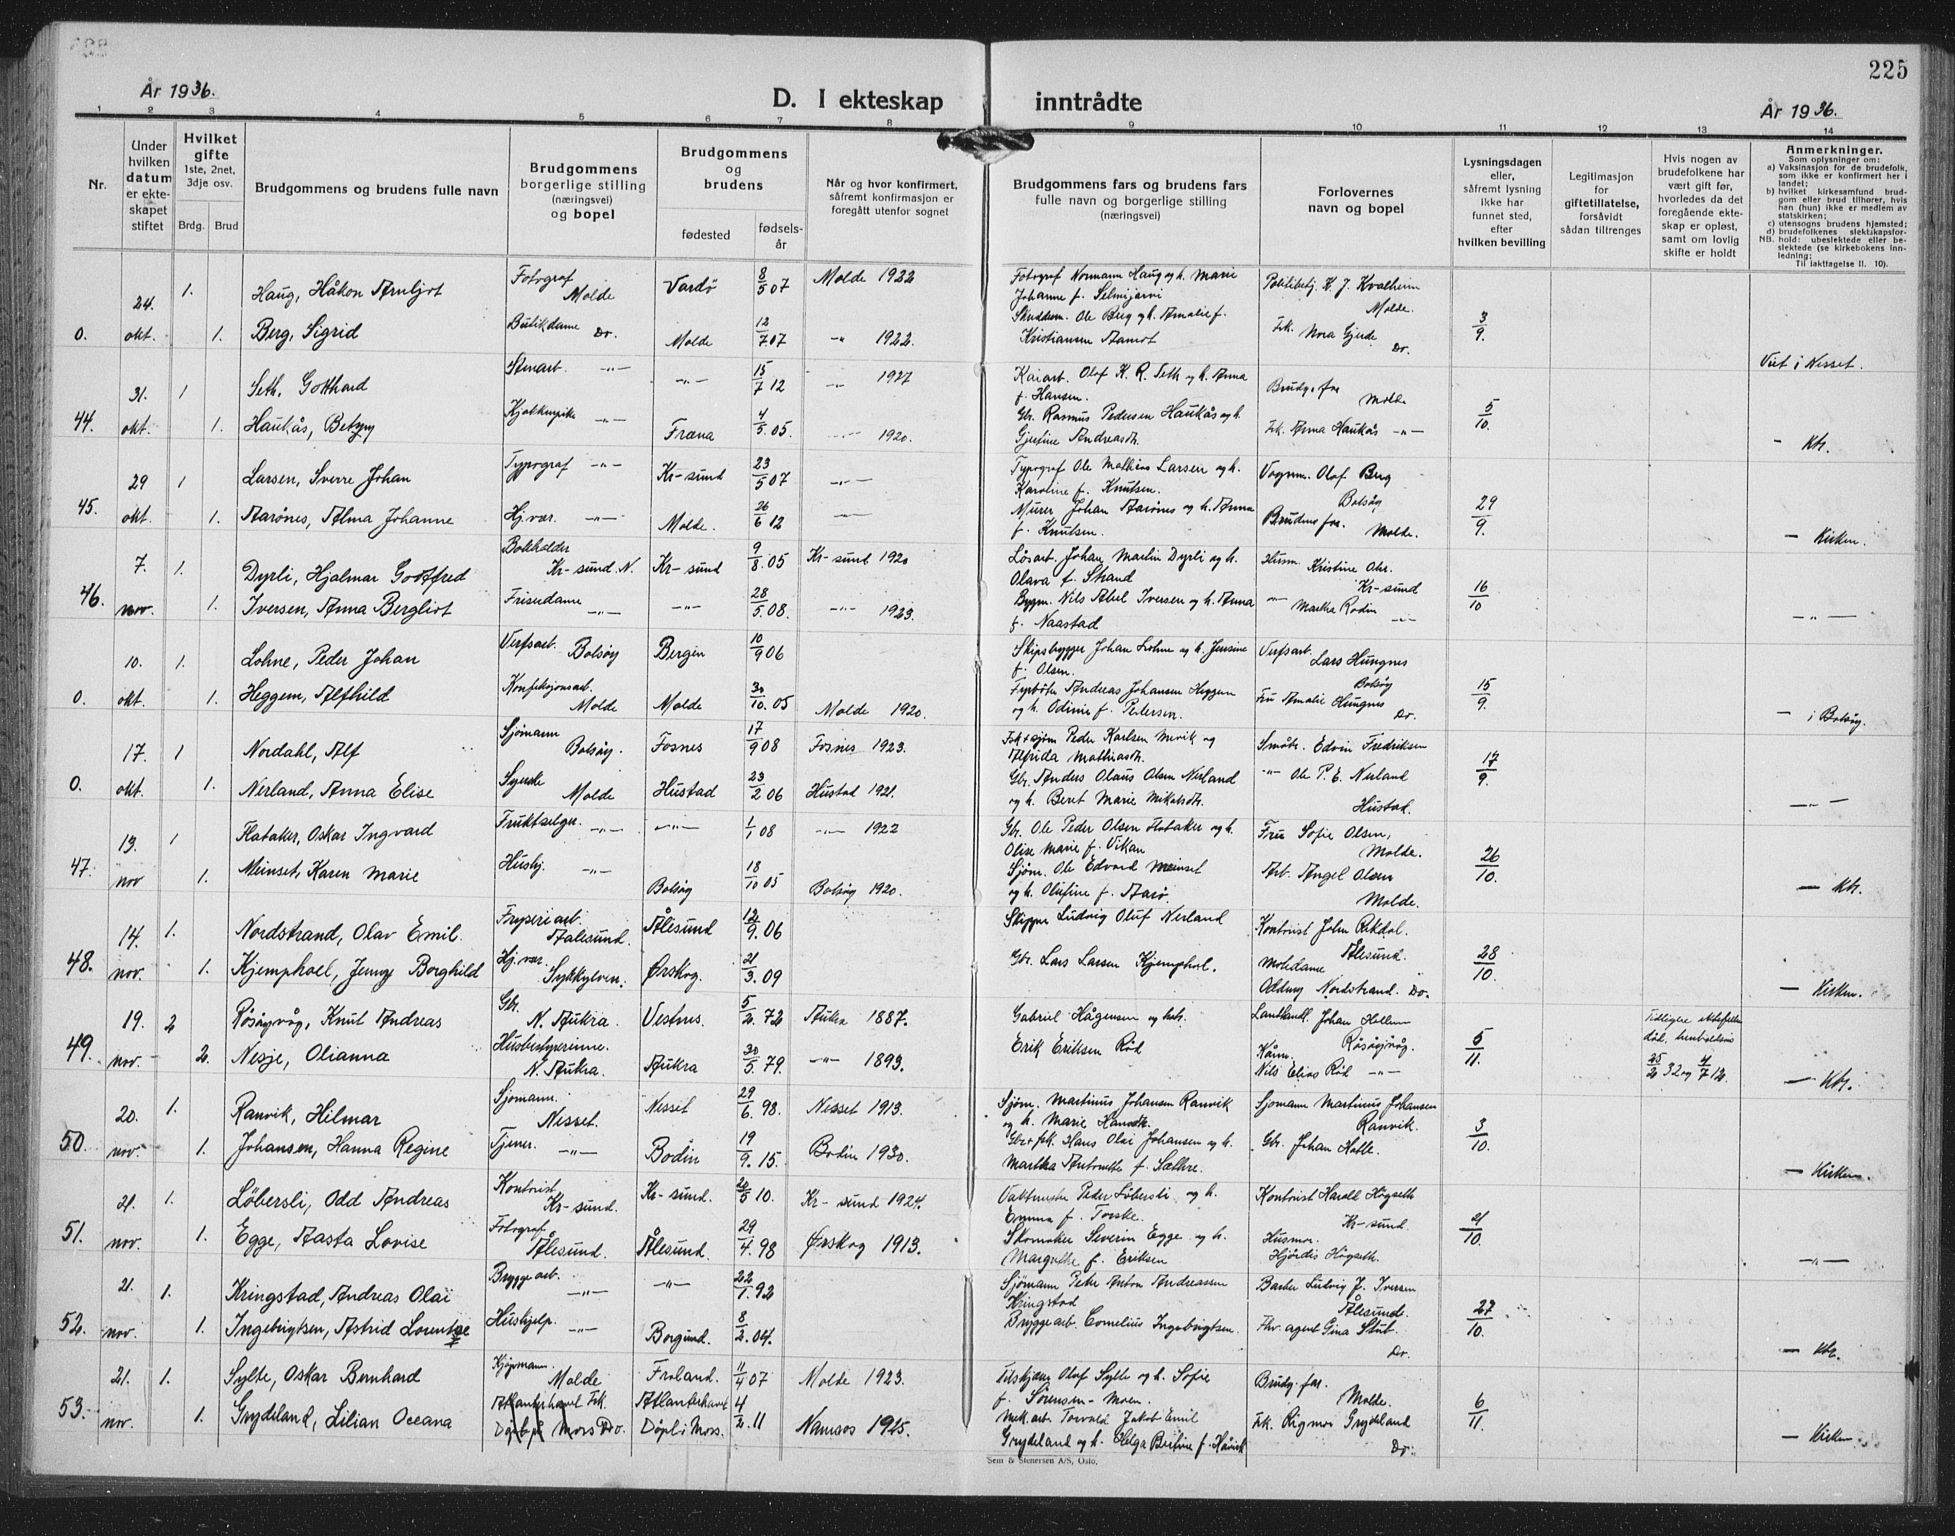 225
År 1936.
D. I ekteskap inntrådte
År 1936.
1 2 3 4 5 6 7 8 9 10 11 12 13 14
Nr.
Under hvilken datum er ekteskapet stiftet
Hvilket gifte 1ste, 2net, 3dje osv.
Brdg. Brud
Brudgommens og brudens fulle navn
Brudgommens borgerlige stilling (næringsvei) og bopel
Brudgommens og brudens
fødested
fødselsår
Når og hvor konfirmert, såfremt konfirmasjon er foregått utenfor sognet
Brudgommens fars og brudens fars fulle navn og borgerlige stilling (næringsvei)
Forlovernes navn og bopel
Lysningsdagen eller, såfremt lysning ikke har funnet sted, efter hvilken bevilling
Legitimasjon for giftetillatelse, forsåvidt sådan tiltrenges
Hvis nogen av brudefolkene har vært gift før, hvorledes da det foregående ekteskap er opløst, samt om lovlig skifte er holdt
Anmerkninger.
Som oplysninger om:
a) Vaksinasjon for de brudefolk, som ikke er konfirmert her i landet;
b) hvilket kirkesamfund brudgom eller brud tilhører, hvis han (hun) ikke er medlem av statskirken;
c) utensogns brudens hjemsted;
d) brudefolkenes slektskapsforhold: ubeslektede eller beslektede (se kirkebokens innledning;
NB. Til iakttagelse II. 10).
24. 1. Haug, Håkon Arnljot Fotograf Molde Vardø 8/5 07 Molde 1922 Fotograf Normann Haug og h. Marie Politibetj. K. J. Kvalheim
Johanne f. Selmijarvi Molde.
0. okt. 1. Berg, Sigrid Butikdame Do. Molde 12/7 07 -"- 1922. Ole Berg og h. Amalie f. Frk. Nora Gjerde 3/9
Kristiansen Aamot Do. Viet i Nesset.
31. 1 Seth, Gotthard Stenarb. -"- -"- 15/7 12 -"- 1927 Kaiarb. Olaf K. R. Seth og h. Anna Brudg. far
f. Hansen. Molde
44. okt. 1. Haukås, Betzy Kjøkkenpike -"- Fræna 4/5 05. 1920. Gbr. Rasmus Pedersen Haukås og h. Frk. Anna Haukås -"- 5/10.
Andreasdtr. - Ktr.
29 1 Larsen, Sverre Johan Typograf -"- Kr-sund 23/5 07 -"- Typograf Ole Mathias Larsen og h. Vognm. Olaf Berg
Karoline f. Knutsen. Bolsøy
45. okt. 1. Aarønes, Alma Johanne Hj.vær. -"- Molde. 26/6 12 -"- Murer Johan Aarønes og h. Anna Brudens far. 29/9.
f. Knutsen. Molde. - Kirken.
7. 1. Dyrli, Hjalmar Gottfred Bokholder Kr-sund N. Kr-sund 9/8 05 Kr-sund 1920 Løsarb. Johan Martin Dyrli og h. Husm. Kristine Ohr.
Olava f. Strand Kr-sund
46. nov. 1. Iversen, Anna Bergliot Frisedame -"- -"- 28/5 08. -"- 1923. Bygm. Nils Abel Iversen og h. Anna -"- Martha Rodin 16/10
f. Naastad -"- -"-
10. 1. Lohne, Peder Johan Verfsarb. Bolsøy Bergen 10/9 06 Skipsbygger Johan Lohne og h. Jensine Verfsarb. Lars Hungnes
f. Olsen. Bolsøy
0. okt. 1. Heggem, Alfhild Konfeksjonsarb. Molde Molde 30/10. 05 Molde 1920. Fyrbøter Andreas Johansen Heggem Fru Amalie Hungnes 15/9.
og h. Odinie f. Pedersen. Do. - i Bolsøy.
17. 1 Nordahl, Alf Sjømann Bolsøy. Fosnes 17/9 08 Fosnes 1923. Peder Karlsen Mevik og Småbr. Edvin Fredriksen
Alfrida Mathiasdtr.
0. okt. 1. Nerland, Anna Elise Syerske Molde Hustad 23/2 06 Hustad 1921. Gbr. Anders Olaus Olsen Nerland -"- Ole P. E. Nerland 17/9.
og h. Beret Marie Mikalsdtr. Hustad. -"-
13. 1 Flataker, Oskar Ingvard Fruktselger -"- -"- 1/1 08 -"- 1922 Gbr. Ole Peder Olsen Flataker og h. Fru Sofie Olsen,
Olise Marie f. Vikan Molde.
47. nov 1. Meinset, Karen Marie Hushj. -"- Bolsøy 18/10 05 Bolsøy 1920. Sjøm. Ole Edvard Meinset Arb. Angel Olsen 26/10.
og h. Olufine f. Aarø. Molde. - Ktr.
14. 1. Nordstrand, Olav Emil. Fryseriarb. Aalesund. Ålesund 12/9. 06 Skipper Ludvig Oluf Nerland Kontorist John Rekdal.
Ålesund.
48. nov. 1. Kjemphoel, Jenny Borghild Hj.vær. Sykkylven. Ørskog. 21/3. 09 Gbr. Lars Larsen Kjemphol. Motedame 28/10.
Oddny Nordstrand. Do. - Kirken.
19. 2 Røsåyvåg, Knut Andreas Gbr. N. Aukra. Vestnes. 5/2. 72 Aukra 1887. Gabriel Hågensen Landhandl. Johan Hellem
Røsåyvåg.
49. nov. 2. Nesje, Olianna Husbestyrerinne. N. Aukra. Aukra 30/5. 79. -"- 1893. Erik Eriksen Rød 5/11.
Nils Elias Rød -"- Tidligere
25/2 32 og 4/7 12. - Ktr.
20. 1. Ranvik, Hilmar Sjømann. Nesset. Nesset 29/6. 98. Nesset 1913. Sjøm. Martinus Johansen Ranvik Sjømann Martinus Johansen
og h. Marie Hansdtr. Ranvik.
50. nov. 1. Johansen, Hanna Regine Tjener. -"- Bodin 19/9. 15. Bodin 1930. Gbr + fsk. Hans Olai Johansen og h. Gbr. Johan Hatle. 3/10.
Martha Antonette f. Sæthre. - Kirken.
21. 1. Løbersli, Odd Andreas Kontorist Kr-sund. Kr-sund. 20/5 10. Kr-sund 1924. Vaktmester Peder Løbersli og h. Kontorist Harald Høgseth
Emma f. Torske. Kr-sund.
51. nov. 1. Egge, Aasta Lovise Fotograf Ålesund. Ålesund. 29/4. 98 Ørskog 1913. Skomaker Severin Egge og h. Husmor. 21/10.
Margrethe f. Eriksen Hjørdis Høgseth. -"-
21. 1. Kringstad, Andreas Olai Bryggearb. -"- -"- 22/1. 92 Sjømann Peter Anton Andreassen Barber Ludvig J. Iversen
Kringstad Ålesund.
52. nov. 1. Ingebrigtsen, Astrid Lorentze Hushjelp -"- Borgund. 8/2. 04. Bryggearb. Cornelius Ingebrigtsen. Frk. agent Gina Stut. 27/10.
Do. - Ktr.
21. 1. Sylte, Oskar Bernhard Kjøpmann. Molde Froland. 11/4 07 Molde 1923. Olaf Sylte og h. Sofie Brudg. far.
f. Sørensen-Moen. Molde.
53. nov. 1. Grydeland, Lilian Oceana Frk. Do. Atlanterhavet 4/2. 11 Namsos 1925. Mek.arb. Torvald Jakob Emil Frk. Rigmor Grydeland 6/11.
Døpt i Mors. Grydeland og h. Helga Bertine f. Håvik Do. - Kirken.
Sem & Stenersen A/S, Oslo.